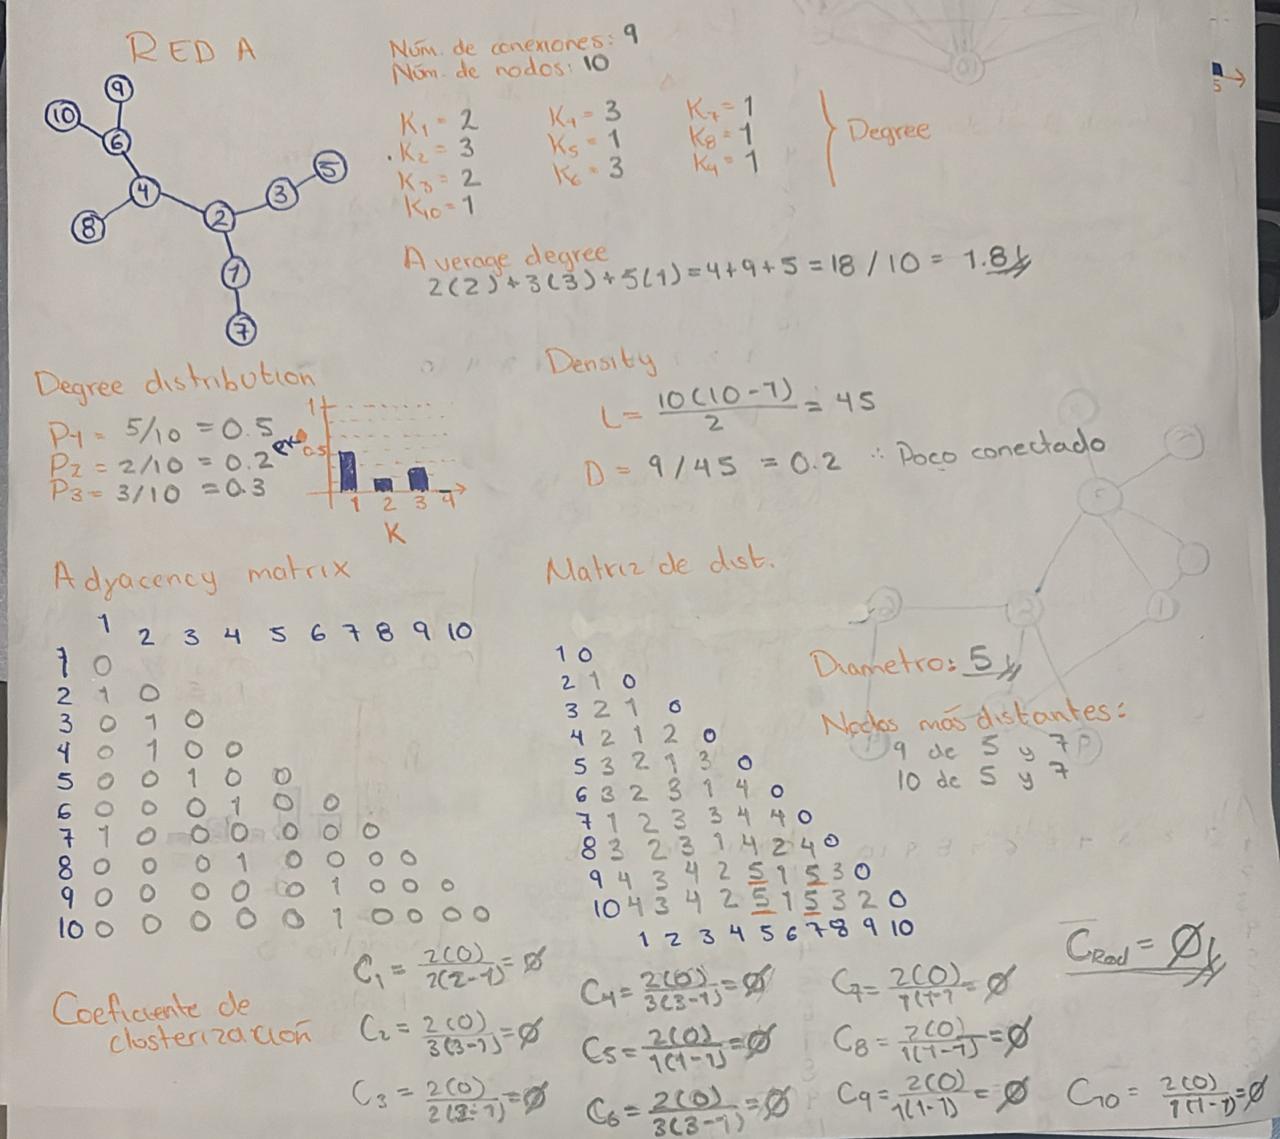 RED A
Núm. de conexiones: 9
Núm. de nodos: 10
9
10
6
4
8
2
3
5
1
7
K1 = 2 K4 = 3 K7 = 1
K2 = 3 K5 = 1 K8 = 1
K3 = 2 K6 = 3 K9 = 1
K10 = 1
Degree
Average degree
2(2)+3(3)+5(1)=4+9+5=18/10=1.8
Degree distribution
P1 = 5/10 = 0.5
P2 = 2/10 = 0.2
P3 = 3/10 = 0.3
1
0.5
1 2 3 4
K
Density
L = 10(10-1)/2 = 45
D = 9/45 = 0.2 ∴ Poco conectado
Adyacency matrix
1 2 3 4 5 6 7 8 9 10
1 0
2 1 0
3 0 1 0
4 0 1 0 0
5 0 0 1 0 0
6 0 0 0 1 0 0
7 1 0 0 0 0 0 0
8 0 0 0 1 0 0 0 0
9 0 0 0 0 0 1 0 0 0
10 0 0 0 0 0 1 0 0 0 0
Matriz de dist.
1 0
2 1 0
3 2 1 0
4 2 1 2 0
5 3 2 1 3 0
6 3 2 3 1 4 0
7 1 2 3 3 4 4 0
8 3 2 3 1 4 2 4 0
9 4 3 4 2 5 1 5 3 0
10 4 3 4 2 5 1 5 3 2 0
1 2 3 4 5 6 7 8 9 10
Diametro: 5
Nodos más distantes:
9 de 5 y 7
10 de 5 y 7
Coeficiente de
closterización
C1 = 2(0)/2(2-1) = Ø
C2 = 2(0)/3(3-1) = Ø
C3 = 2(0)/2(2-1) = Ø
C4 = 2(0)/3(3-1) = Ø
C5 = 2(0)/1(1-1) = Ø
C6 = 2(0)/3(3-1) = Ø
C7 = 2(0)/1(1-1 = Ø
C8 = 2(0)/1(1-1) = Ø
C9 = 2(0)/1(1-1) = Ø
C10 = 2(0)/1(1-1) = Ø
CRed = Ø
5